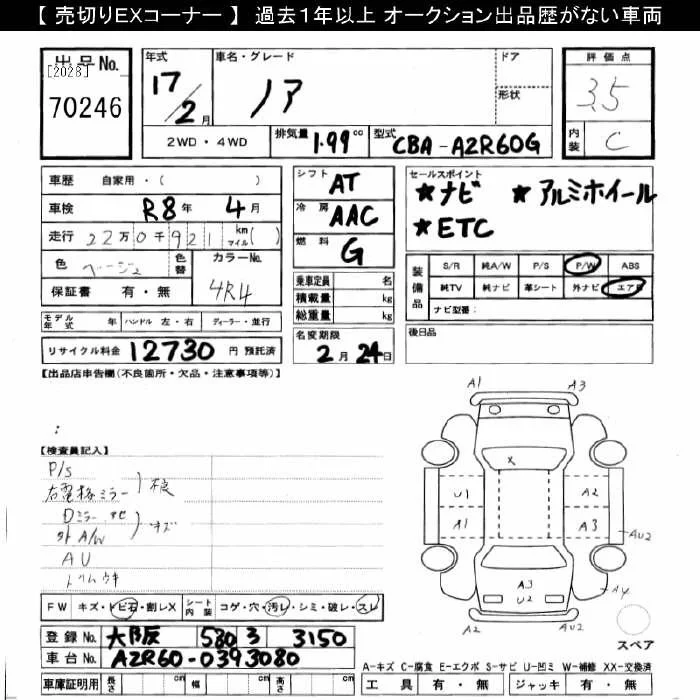 【 売切りEXコーナー 】 過去１年以上 オークション出品歴がない車両
出品No.
[2028]
70246
年式
17/2月
車名・グレード
ノア
ドア
形状
評価点
3.5
内装
C
2WD・4WD
排気量 1.99 cc
型式 CBA-AZR60G
車歴 自家用・( )
車検 R8年 4月
走行 22万0千921 km マイル( )
色 ベージュ
色替
カラーNo.
4R4
保証書 有・無
シフト AT
冷房 AAC
燃料 G
乗車定員 名
積載量 kg
総重量 kg
セールスポイント
★ナビ ★アルミホイール
★ETC
装備品
S/R 純A/W P/S P/W ABS
純TV 純ナビ 革シート 外ナビ エアB
ナビ型番:
モデル年式 年 ハンドル 左・右 ディーラー・並行
リサイクル料金 12730 円 預託済
名変期限
2月24日
後日品
【出品店申告欄(不良箇所・欠品・注意事項等)】
【検査員記入】
P/S
右電格ミラー 不良
Dミラー、ナビ
外A/W キズ
AU
トリムウキ
A1 A3
X
U1 A2
A1 A3 AU2
A3
U2 A4
A2 AU2
スペア
FW キズ・トビ石・割レX
シート内装 コゲ・穴・汚レ・シミ・破レ・スレ
登録No. 大阪 580 ろ 3150
車台No. AZR60-0393080
車庫証明用 長さ cm 幅 cm 高さ cm
A-キズ C-腐食 E-エクボ S-サビ U-凹ミ W-補修 XX-交換済
工具 有・無 ジャッキ 有・無